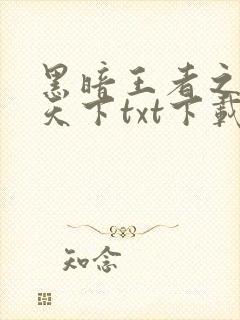 黑暗王者之
天下txt下载
知念